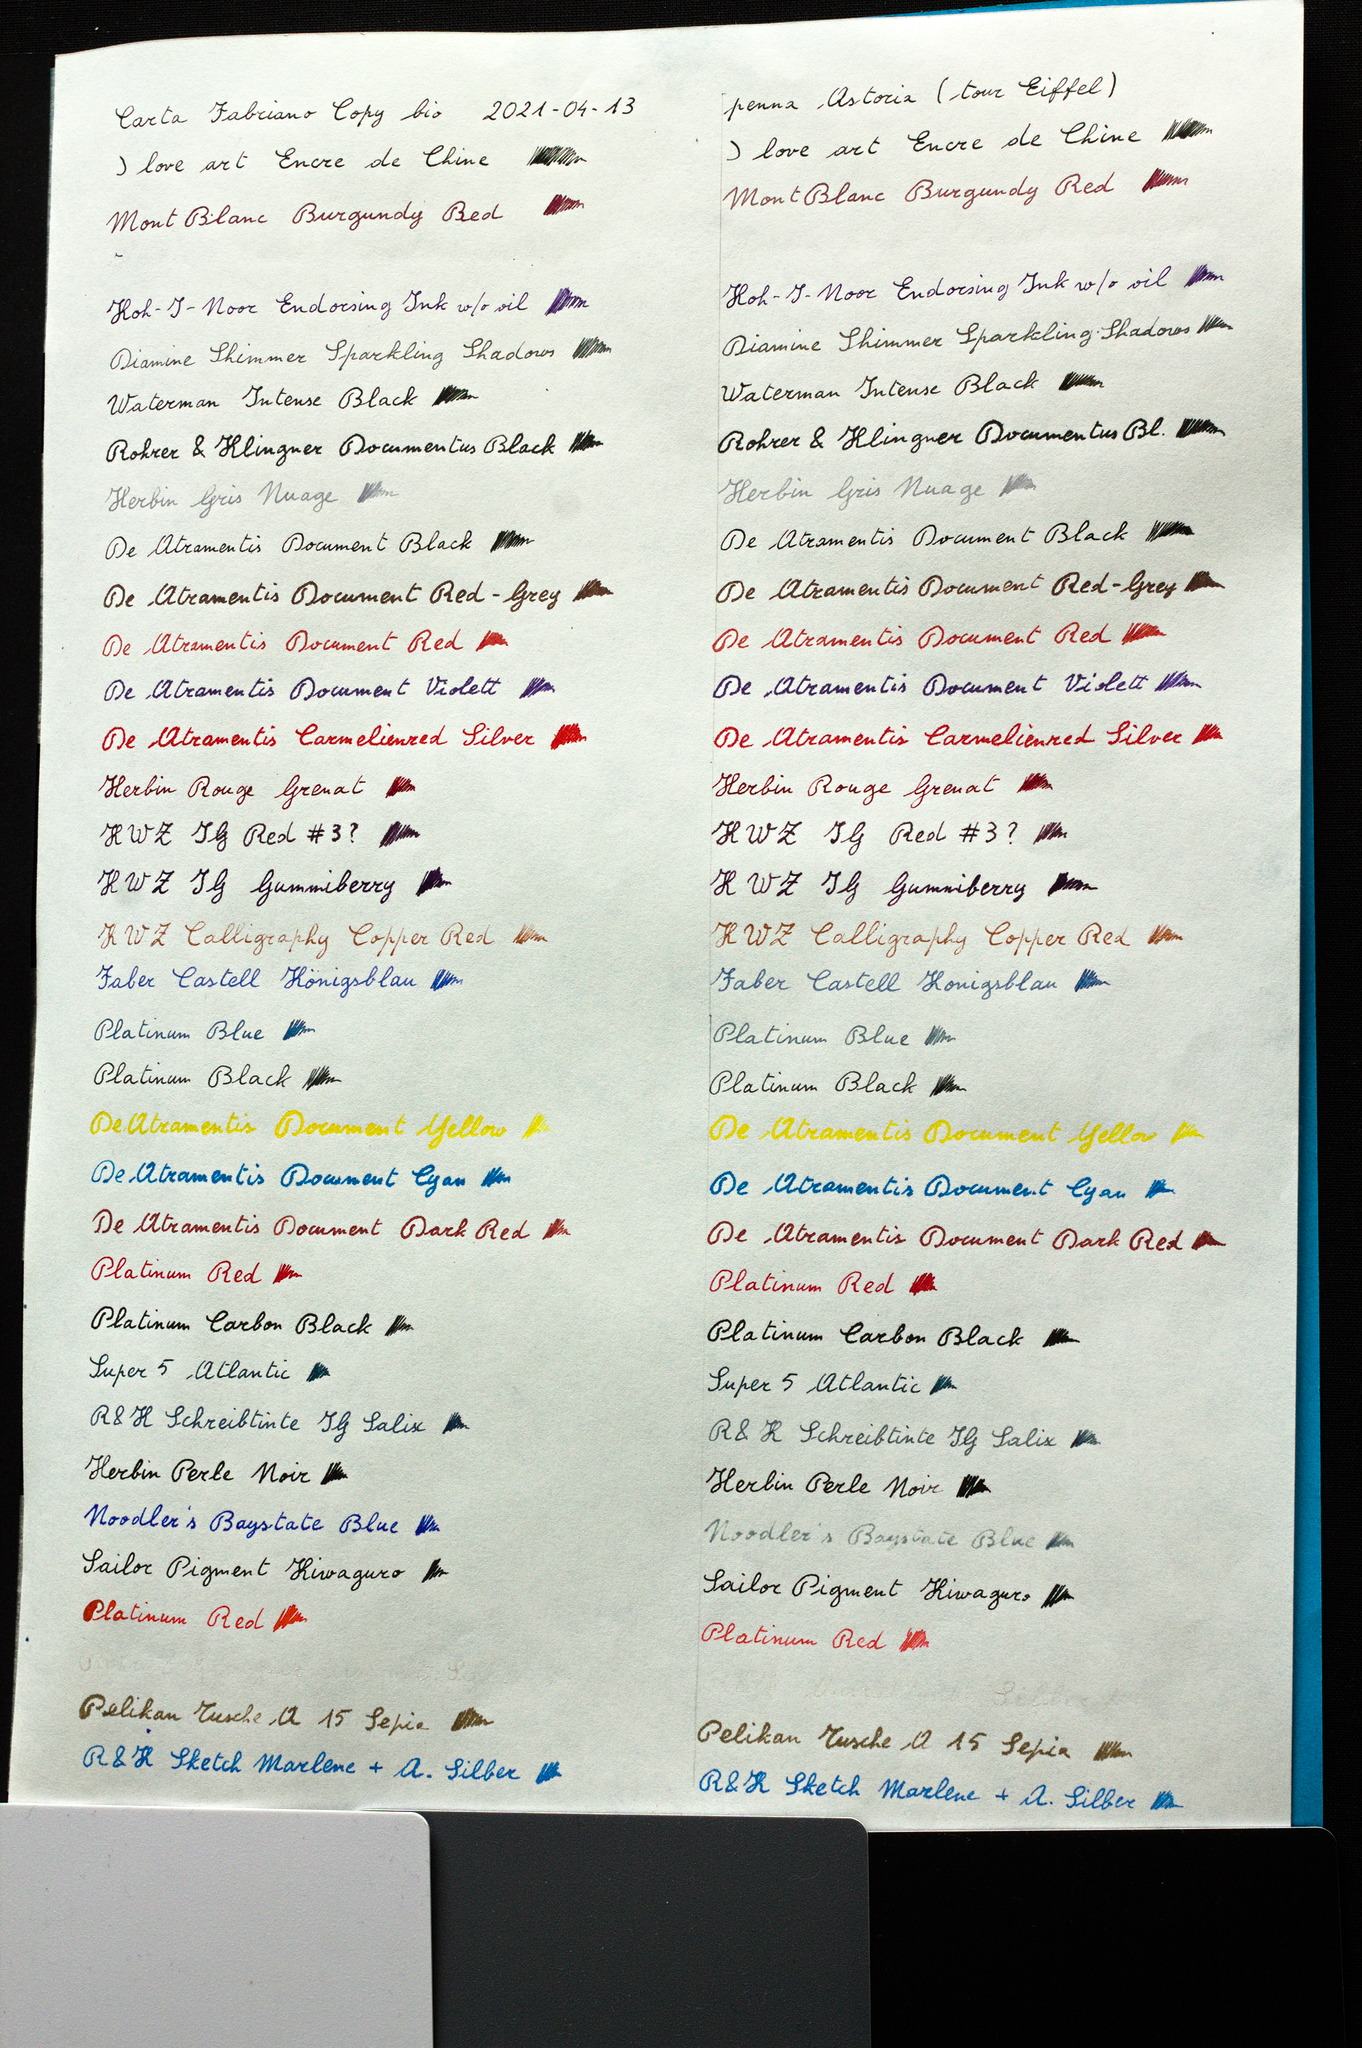 Carta Fabriano Copy bio 2021-04-13
I love art Encre de Chine
MontBlanc Burgundy Red
Koh-I-Noor Endorsing Ink w/o oil
Diamine Shimmer Sparkling Shadows
Waterman Intense Black
Rohrer & Klingner Documentus Black
Herbin Gris Nuage
De Atramentis Document Black
De Atramentis Document Red-Grey
De Atramentis Document Red
De Atramentis Document Violett
De Atramentis Carmelienred Silver
Herbin Rouge Grenat
KWZ IG Red #3?
KWZ IG Gummiberry
KWZ Calligraphy Copper Red
Faber Castell Königsblau
Platinum Blue
Platinum Black
De Atramentis Document Yellow
De Atramentis Document Cyan
De Atramentis Document Dark Red
Platinum Red
Platinum Carbon Black
Super 5 Atlantic
R&K Schreibtinte IG Salix
Herbin Perle Noir
Noodler's Baystate Blue
Sailor Pigment Kiwaguro
Platinum Red
Pelikan Tusche A 15 Sepia
R&K Sketch Marlene + A. Silber
penna Astoria (tour Eiffel)
I love art Encre de Chine
MontBlanc Burgundy Red
Koh-I-Noor Endorsing Ink w/o oil
Diamine Shimmer Sparkling Shadows
Waterman Intense Black
Rohrer & Klingner Documentus Bl.
Herbin Gris Nuage
De Atramentis Document Black
De Atramentis Document Red-Grey
De Atramentis Document Red
De Atramentis Document Violett
De Atramentis Carmelienred Silver
Herbin Rouge Grenat
KWZ IG Red #3?
KWZ IG Gummiberry
KWZ Calligraphy Copper Red
Faber Castell Konigsblau
Platinum Blue
Platinum Black
De Atramentis Document Yellow
De Atramentis Document Cyan
De Atramentis Document Dark Red
Platinum Red
Platinum Carbon Black
Super 5 Atlantic
R&K Schreibtinte IG Salix
Herbin Perle Noir
Noodler's Baystate Blue
Sailor Pigment Kiwaguro
Platinum Red
Silber
Pelikan Tusche A 15 Sepia
R&K Sketch Marlene + A. Silber